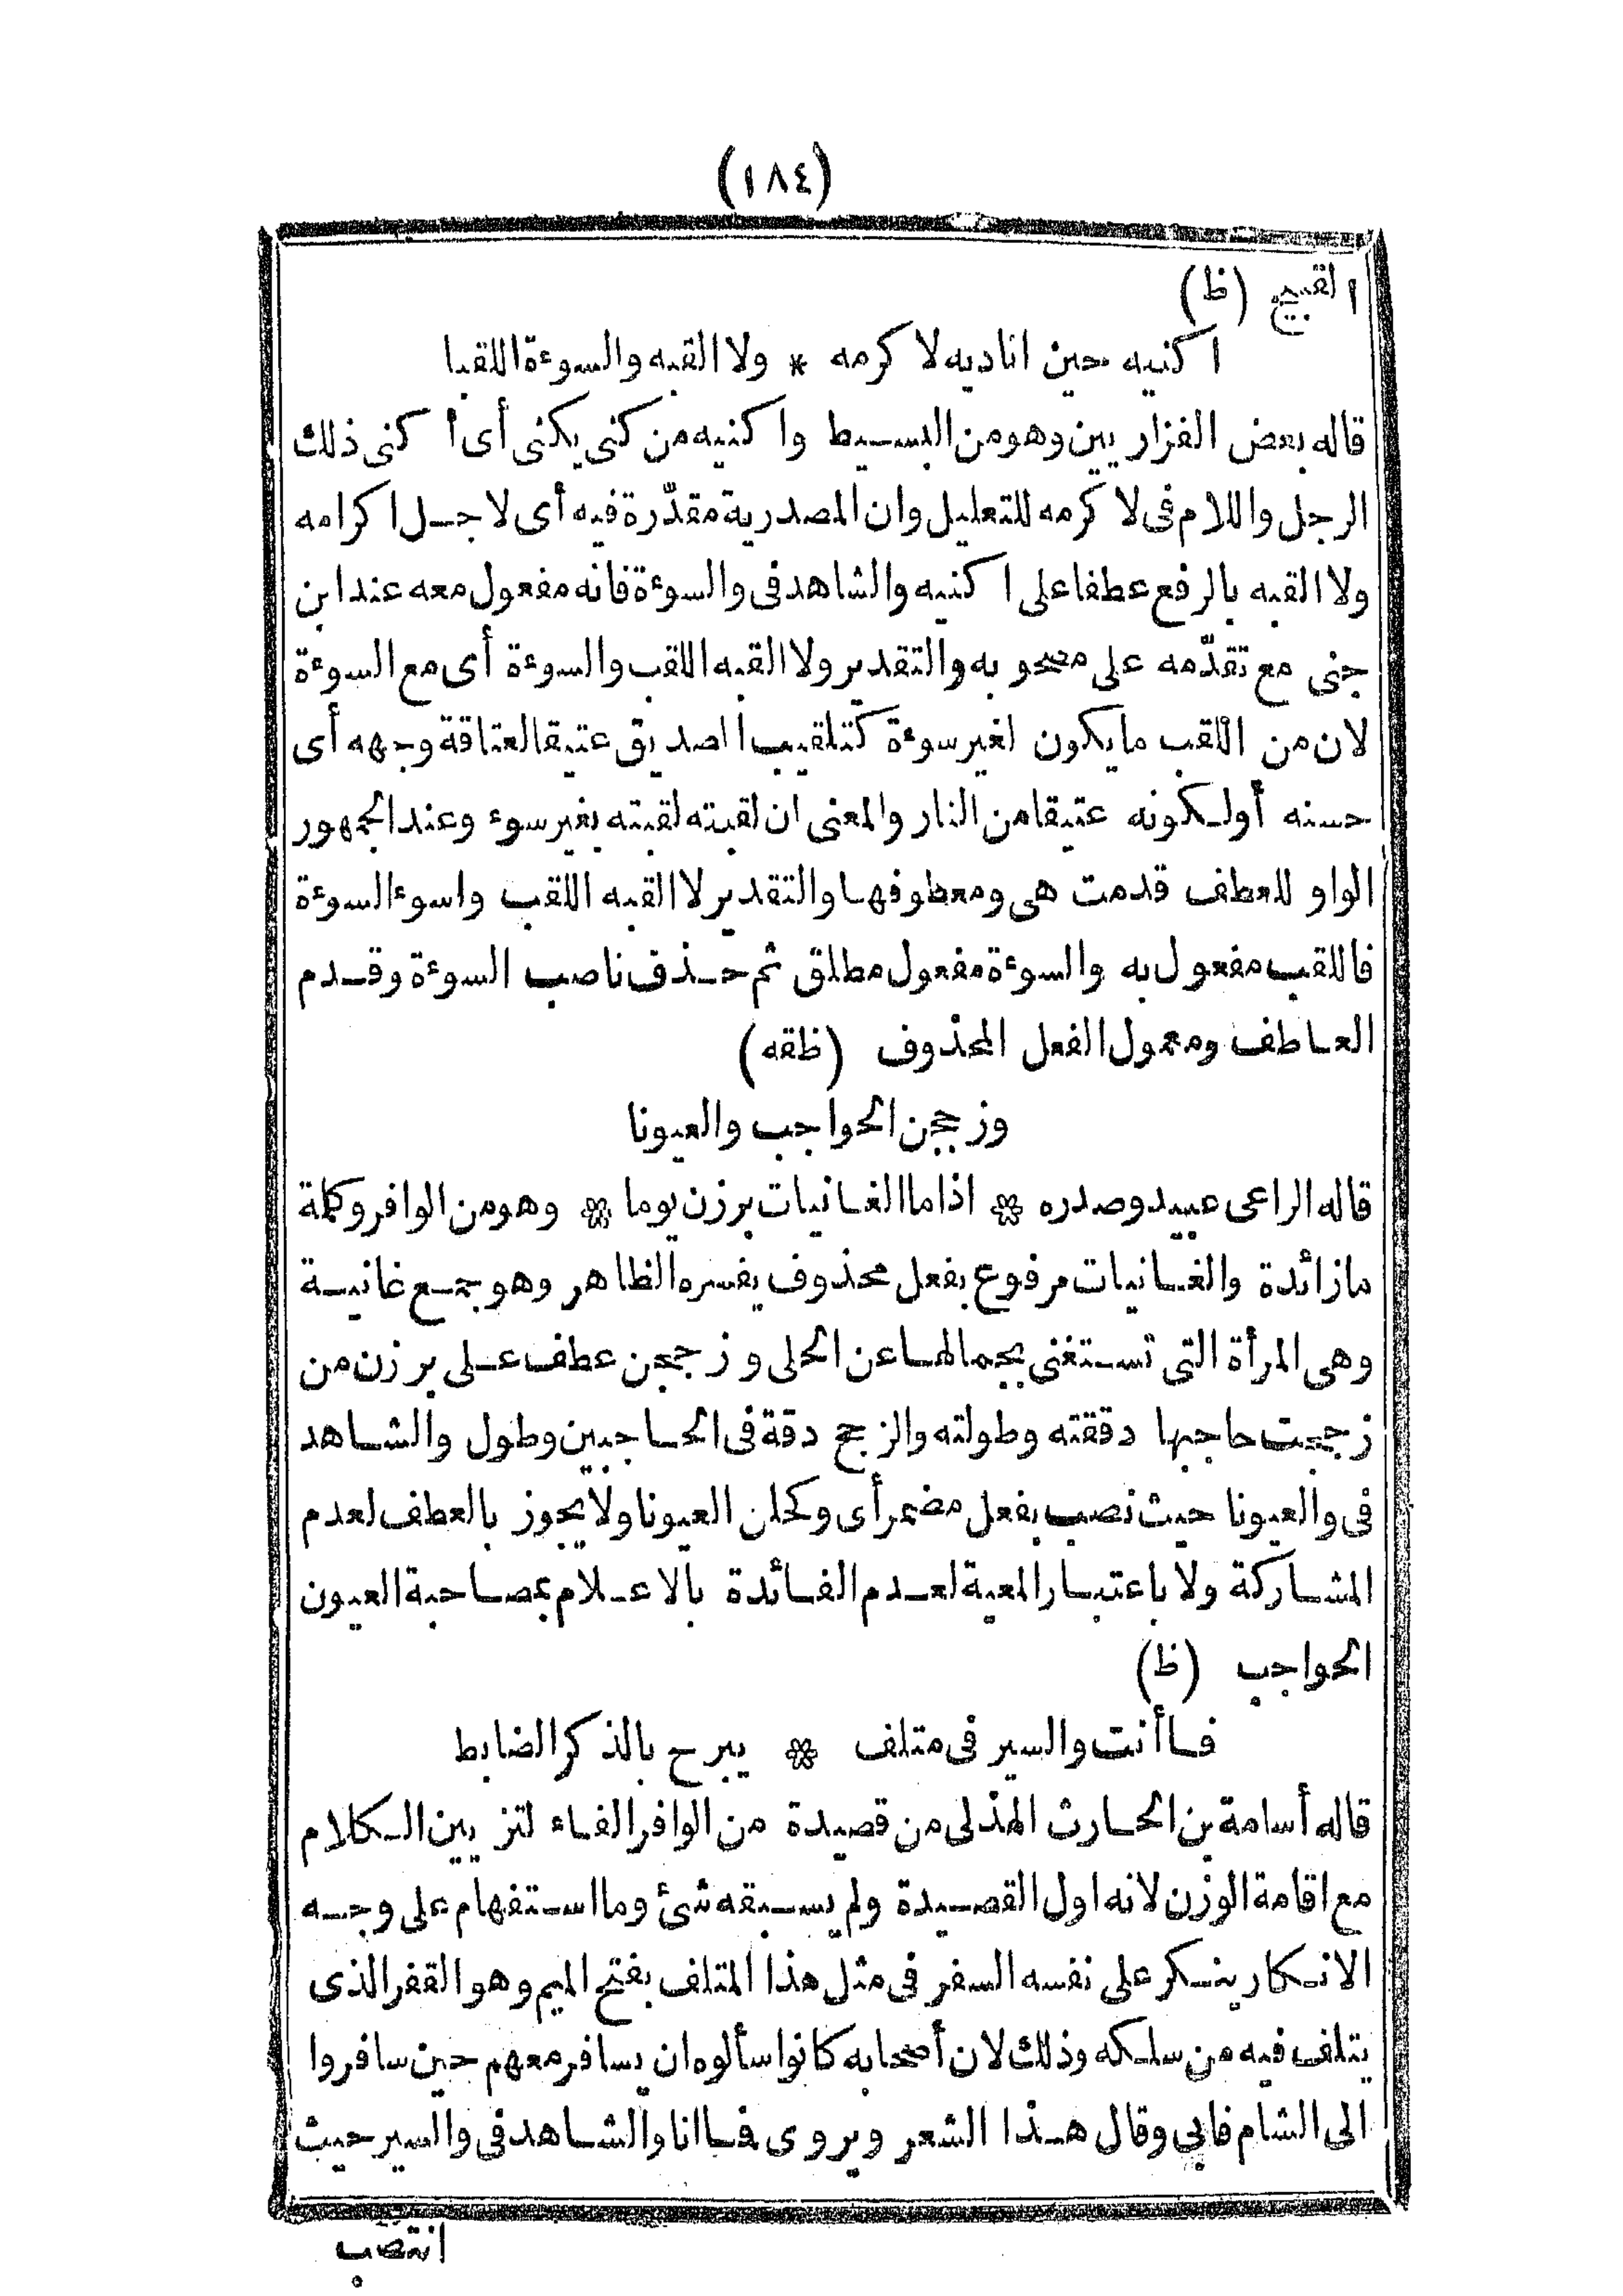 (١٨٤)
القبيح (ظ)
اكنيه حين اناديه لاكرمه * ولا القبه والسوءة اللقبا
قاله بعض الفزاريين وهو من البسيط واكنيه من كنى يكنى أى أكنى ذلك
الرجل واللام فى لاكرمه للتعليل وان المصدرية مقدّرة فيه أى لاجل اكرامه
ولا القبه بالرفع عطفا على اكنيه والشاهد فى والسوءة فانه مفعول معه عند ابن
جنى مع تقدّمه على مصحوبه والتقدير ولا القبه اللقب والسوءة أى مع السوءة
لان من اللقب ما يكون لغير سوءة كتلقيب الصديق عتيقا لعتاقة وجهه أى
حسنه أولكونه عتيقا من النار والمعنى ان لقبته لقبته بغير سوء وعند الجمهور
الواو للعطف قدمت هى ومعطوفها والتقدير لا القبه اللقب واسوء السوءة
فاللقب مفعول به والسوءة مفعول مطلق ثم حذف ناصب السوءة وقدم
العاطف ومعمول الفعل المحذوف (ظقه)
وزججن الحواجب والعيونا
قاله الراعى عبيد وصدره * اذا ما الغانيات برزن يوما * وهو من الوافر وكلمة
ما زائدة والغانيات مرفوع بفعل محذوف يفسره الظاهر وهو جمع غانية
وهى المرأة التى تستغنى بجمالها عن الحلى وزججن عطف على برزن من
زججت حاجبها دققته وطولته والزجج دقة فى الحاجبين وطول والشاهد
فى والعيونا حيث نصب بفعل مضمر أى وكحلن العيونا ولا يجوز بالعطف لعدم
المشاركة ولا باعتبار المعية لعدم الفائدة بالاعلام بمصاحبة العيون
الحواجب (ظ)
فما أنت والسير فى متلف * يبرح بالذكر الضابط
قاله أسامة بن الحارث الهذلى من قصيدة من الوافر الفاء لتزيين الكلام
مع اقامة الوزن لانه اول القصيدة ولم يسبقه شئ وما استفهام على وجه
الانكار ينكر على نفسه السفر فى مثل هذا المتلف بفتح الميم وهو القفر الذى
يتلف فيه من سلكه وذلك لان أصحابه كانوا سألوه ان يسافر معهم حين سافروا
الى الشام فابى وقال هذا الشعر ويروى فما انا والشاهد فى والسير حيث
انتصب